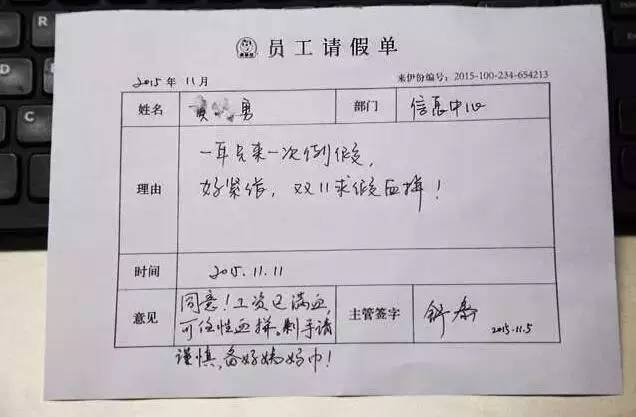 员工请假单
2015年11月 来伊份编号：2015-100-234-654213
姓名 勇 部门 信息中心
一年只来一次例假，
理由 双11求假血拼！
时间 2015.11.11
同意！工资已满血，
意见 可任性血拼。剁手请 主管签字 2015.11.5
谨慎，备好姨妈巾！